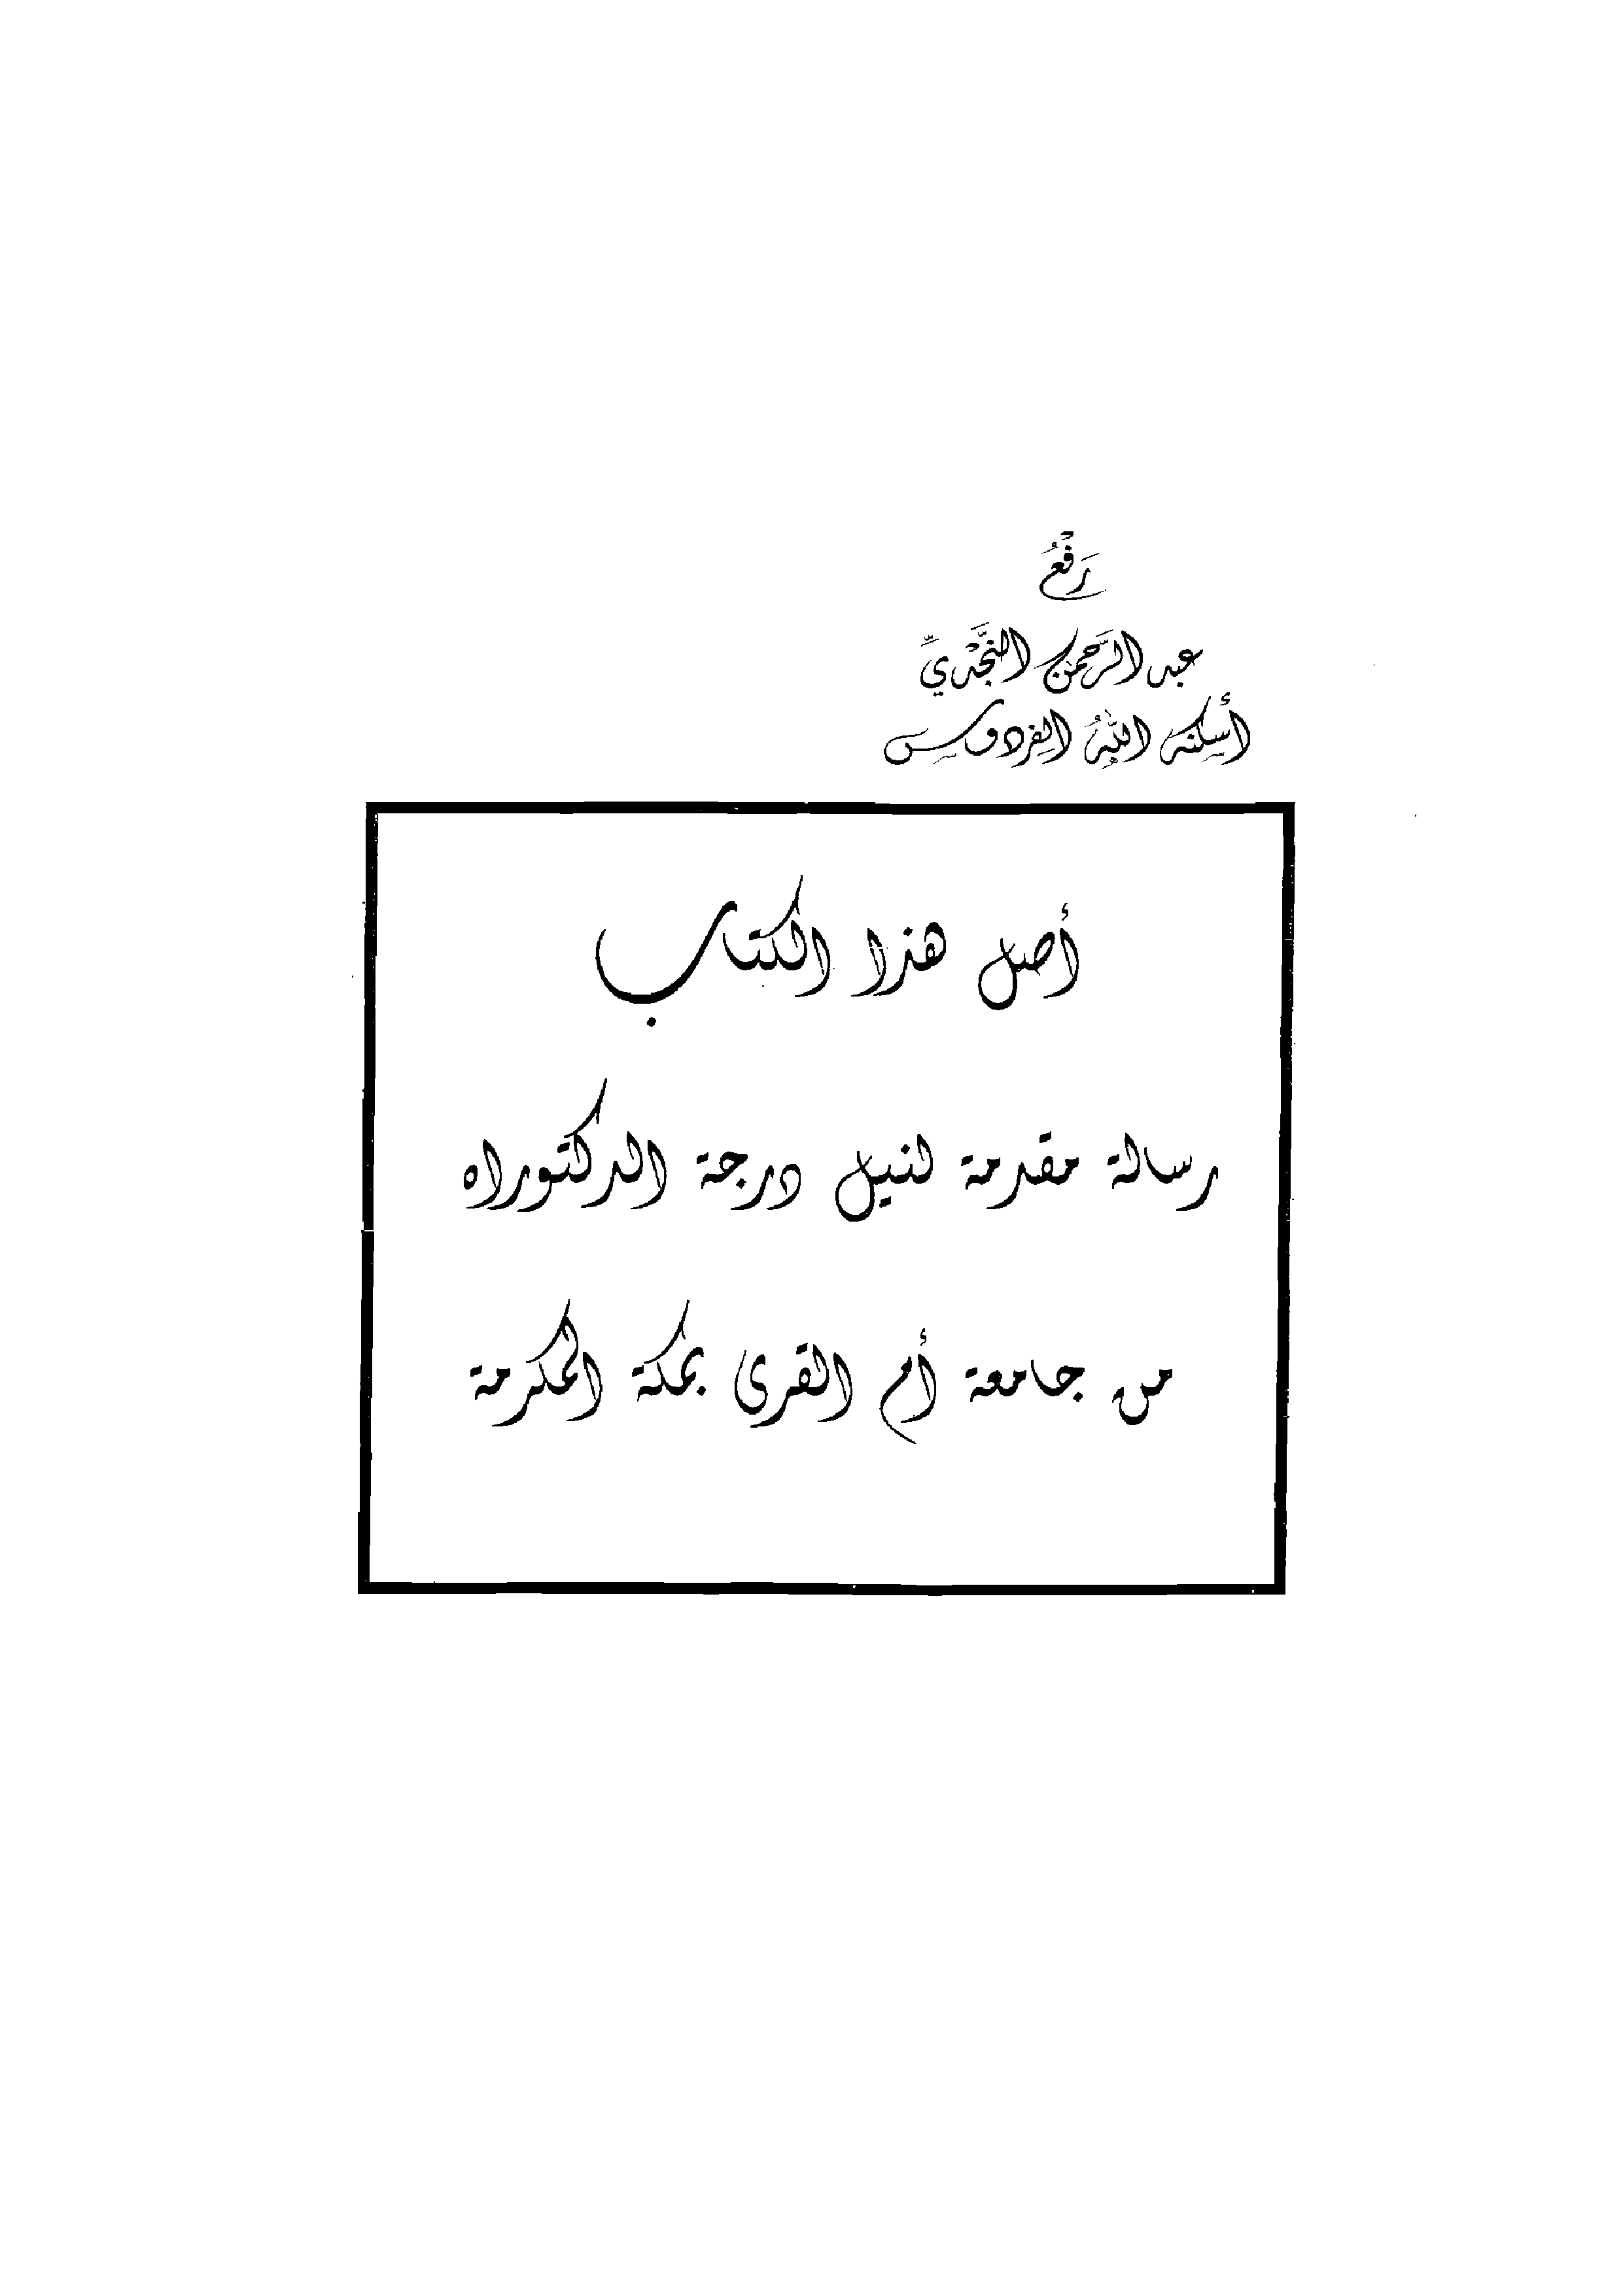 رَفْعُ
عبد الرَّحمن النَّجْدِيِّ
أسكنه اللهُ الفردوس
أصل هذا الكتاب
رسالة مقدمة لنيل درجة الدكتوراه
من جامعة أم القرى بمكة المكرمة